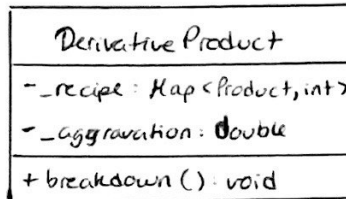 Derivative Product
-_recipe: Map<Product, int>
-_aggravation: double
+ breakdown(): void